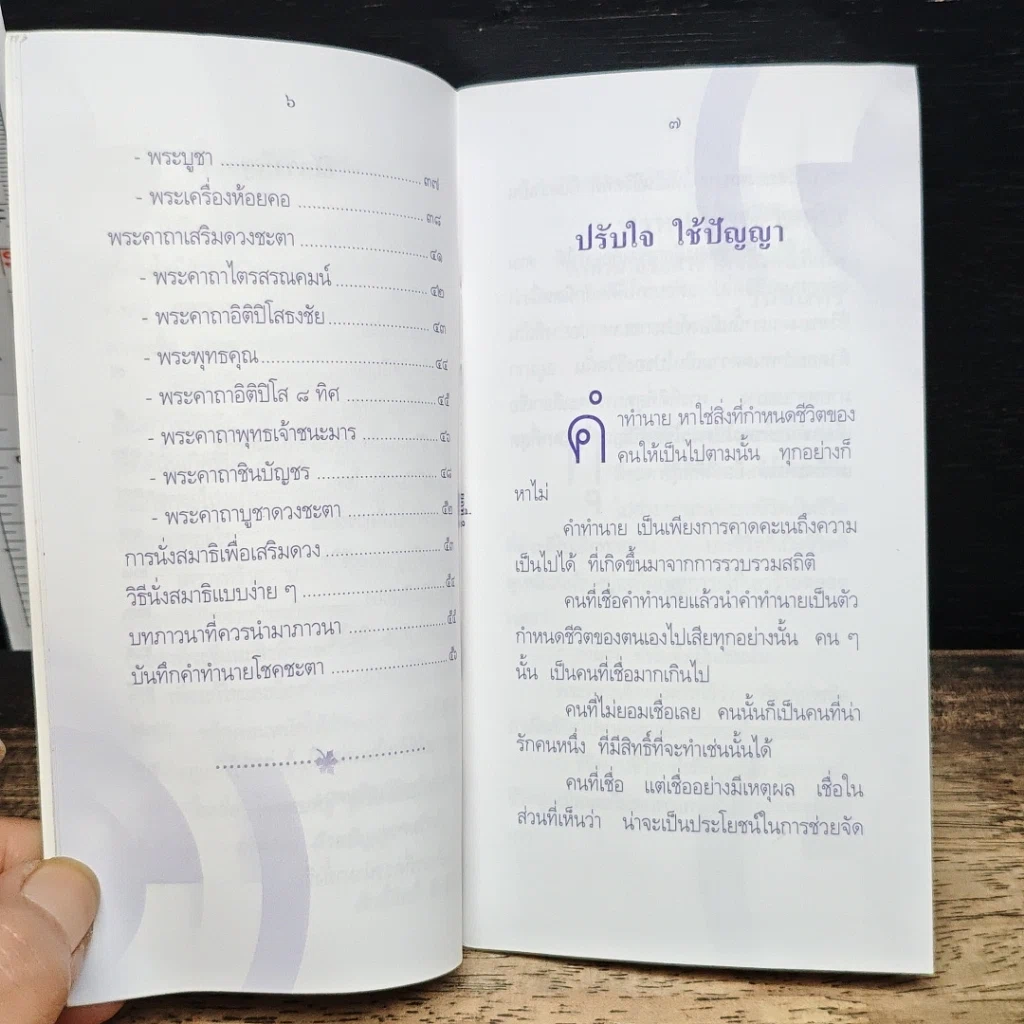 ๖
- พระบูชา ........................................ ๓๗
- พระเครื่องห้อยคอ ........................... ๓๘
พระคาถาเสริมดวงชะตา ........................... ๔๑
- พระคาถาไตรสรณคมน์ ..................... ๔๒
- พระคาถาอิติปิโสธงชัย ..................... ๔๓
- พระพุทธคุณ .................................. ๔๔
- พระคาถาอิติปิโส ๘ ทิศ ................... ๔๕
- พระคาถาพุทธเจ้าชนะมาร ................ ๔๖
- พระคาถาชินบัญชร ......................... ๔๘
- พระคาถาบูชาดวงชะตา ................... ๕๒
การนั่งสมาธิเพื่อเสริมดวง ........................ ๕๓
วิธีนั่งสมาธิแบบง่าย ๆ ........................... ๕๔
บทภาวนาที่ควรนำมาภาวนา .................... ๕๕
บันทึกคำทำนายโชคชะตา ....................... ๕๖
๗
ปรับใจ ใช้ปัญญา
คำทำนาย หาใช่สิ่งที่กำหนดชีวิตของ
คนให้เป็นไปตามนั้น ทุกอย่างก็
หาไม่
คำทำนาย เป็นเพียงการคาดคะเนถึงความ
เป็นไปได้ ที่เกิดขึ้นมาจากการรวบรวมสถิติ
คนที่เชื่อคำทำนายแล้วนำคำทำนายเป็นตัว
กำหนดชีวิตของตนเองไปเสียทุกอย่างนั้น คน ๆ
นั้น เป็นคนที่เชื่อมากเกินไป
คนที่ไม่ยอมเชื่อเลย คนนั้นก็เป็นคนที่น่า
รักคนหนึ่ง ที่มีสิทธิ์ที่จะทำเช่นนั้นได้
คนที่เชื่อ แต่เชื่ออย่างมีเหตุผล เชื่อใน
ส่วนที่เห็นว่า น่าจะเป็นประโยชน์ในการช่วยจัด